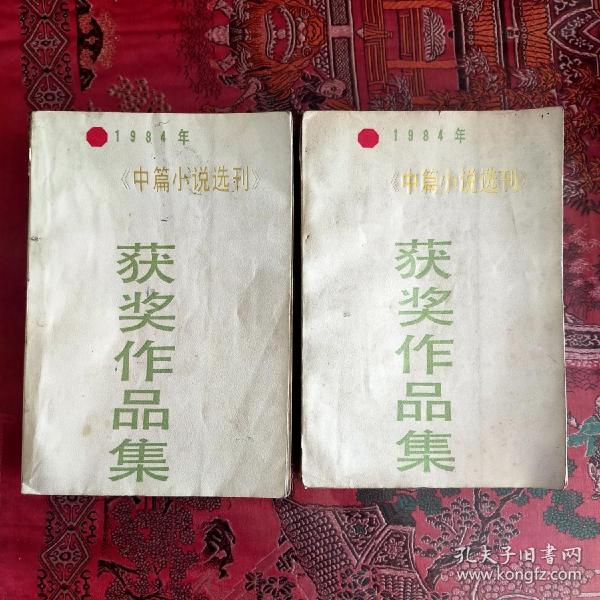 1984年
《中篇小说选刊》
获奖作品集
1984年
《中篇小说选刊》
获奖作品集
孔夫子旧书网
www.kongfz.com